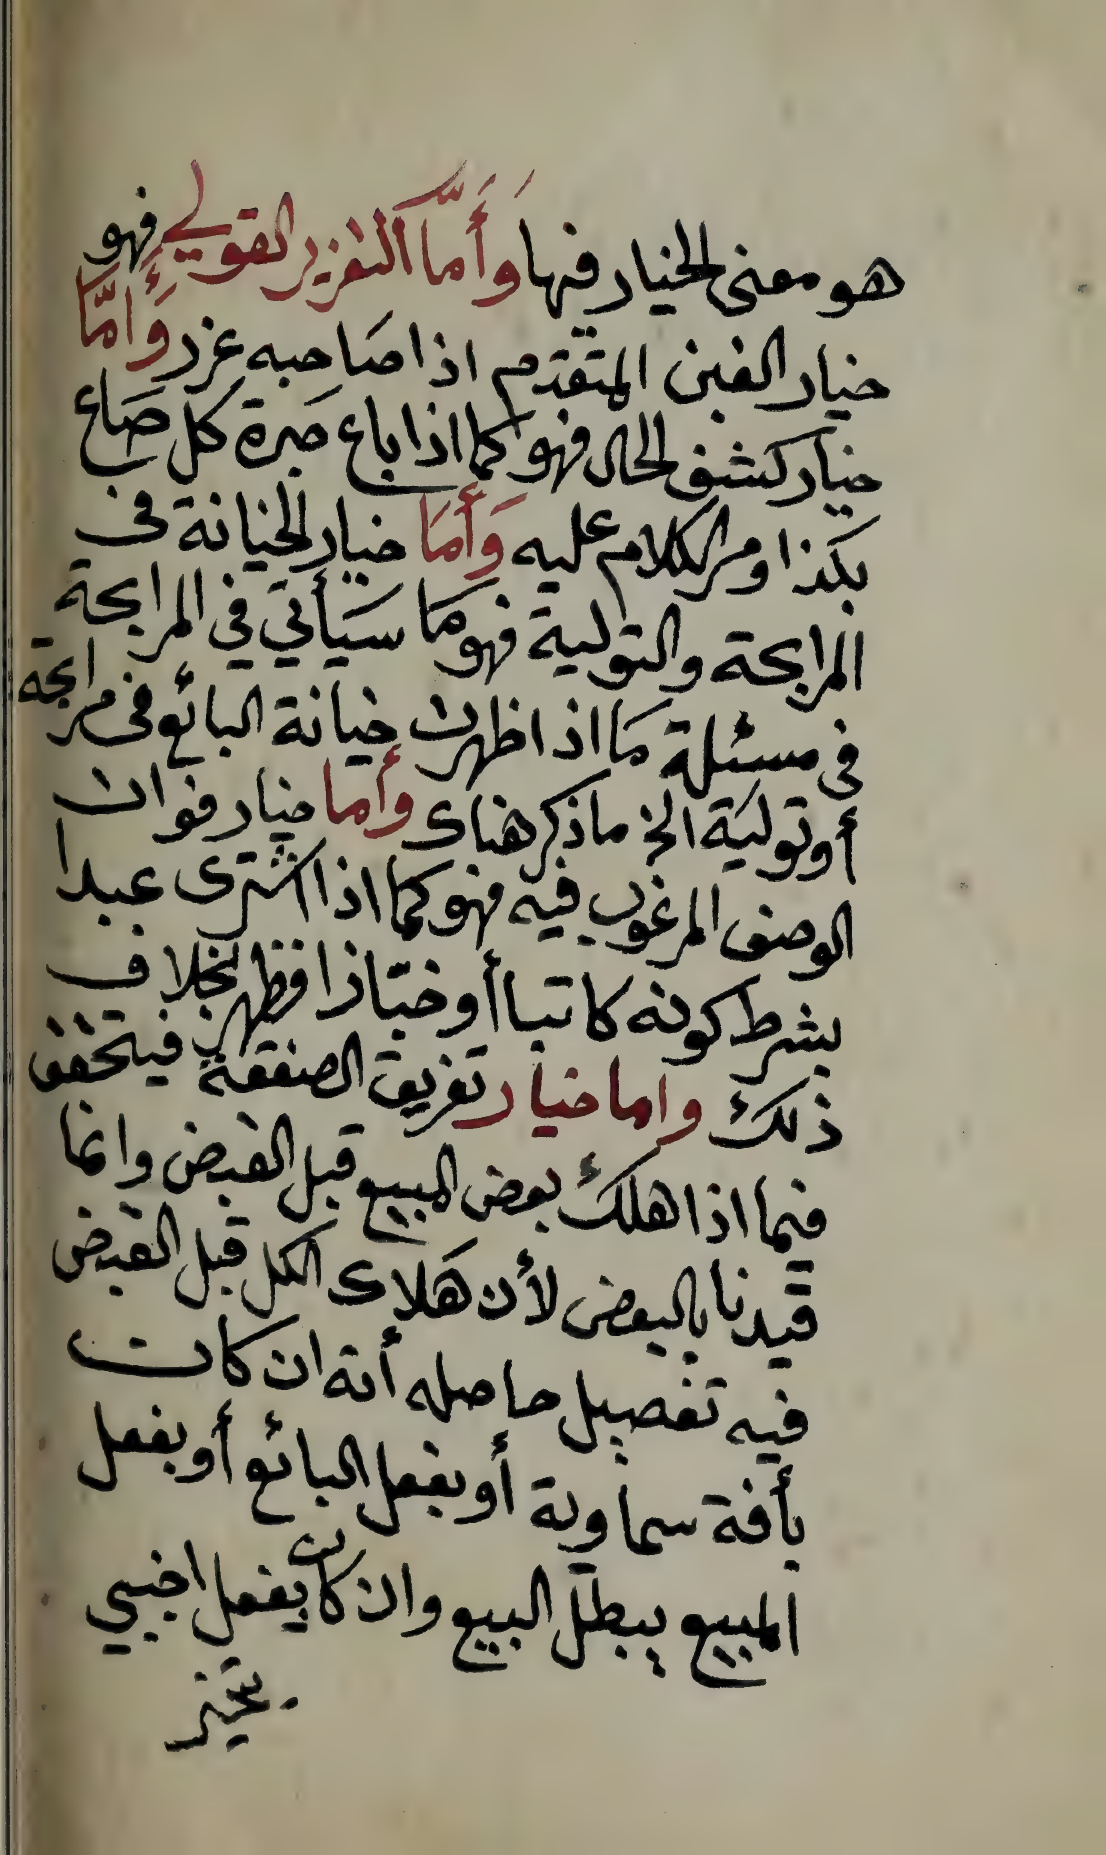 هو معنى الخيار فيها وَأَمَّا التغرير القولي فهو
خيار الغبن المتقدم اذا صاحبه غرر وَأَمَّا
خيار كشف الحال فهو كما اذا باع صبرة كل صاع
بكذا ومر الكلام عليه وَأَمَا خيار الخيانة في
المرابحة والتولية فهو ما سيأتي في المرابحة
في مسئلة ما اذا ظهرت خيانة البائع في مرابحة
أو تولية الخ ما ذكر هناك وأما خيار فوات
الوصف المرغوب فيه فهو كما اذا اشترى عبدا
بشرط كونه كاتبا أو خبّازا فظهر بخلاف
ذلك واما خيار تفريق الصفقة فيتحقق
فيما اذا هلك بعض المبيع قبل القبض وانما
قيدنا بالبعض لأن هَلاك الكل قبل القبض
فيه تفصيل حاصله أنه ان كانت
بأفة سماوية أو بفعل البائع أو بفعل
المبيع يبطل البيع وان كانت بفعل اجنبي
يتخير